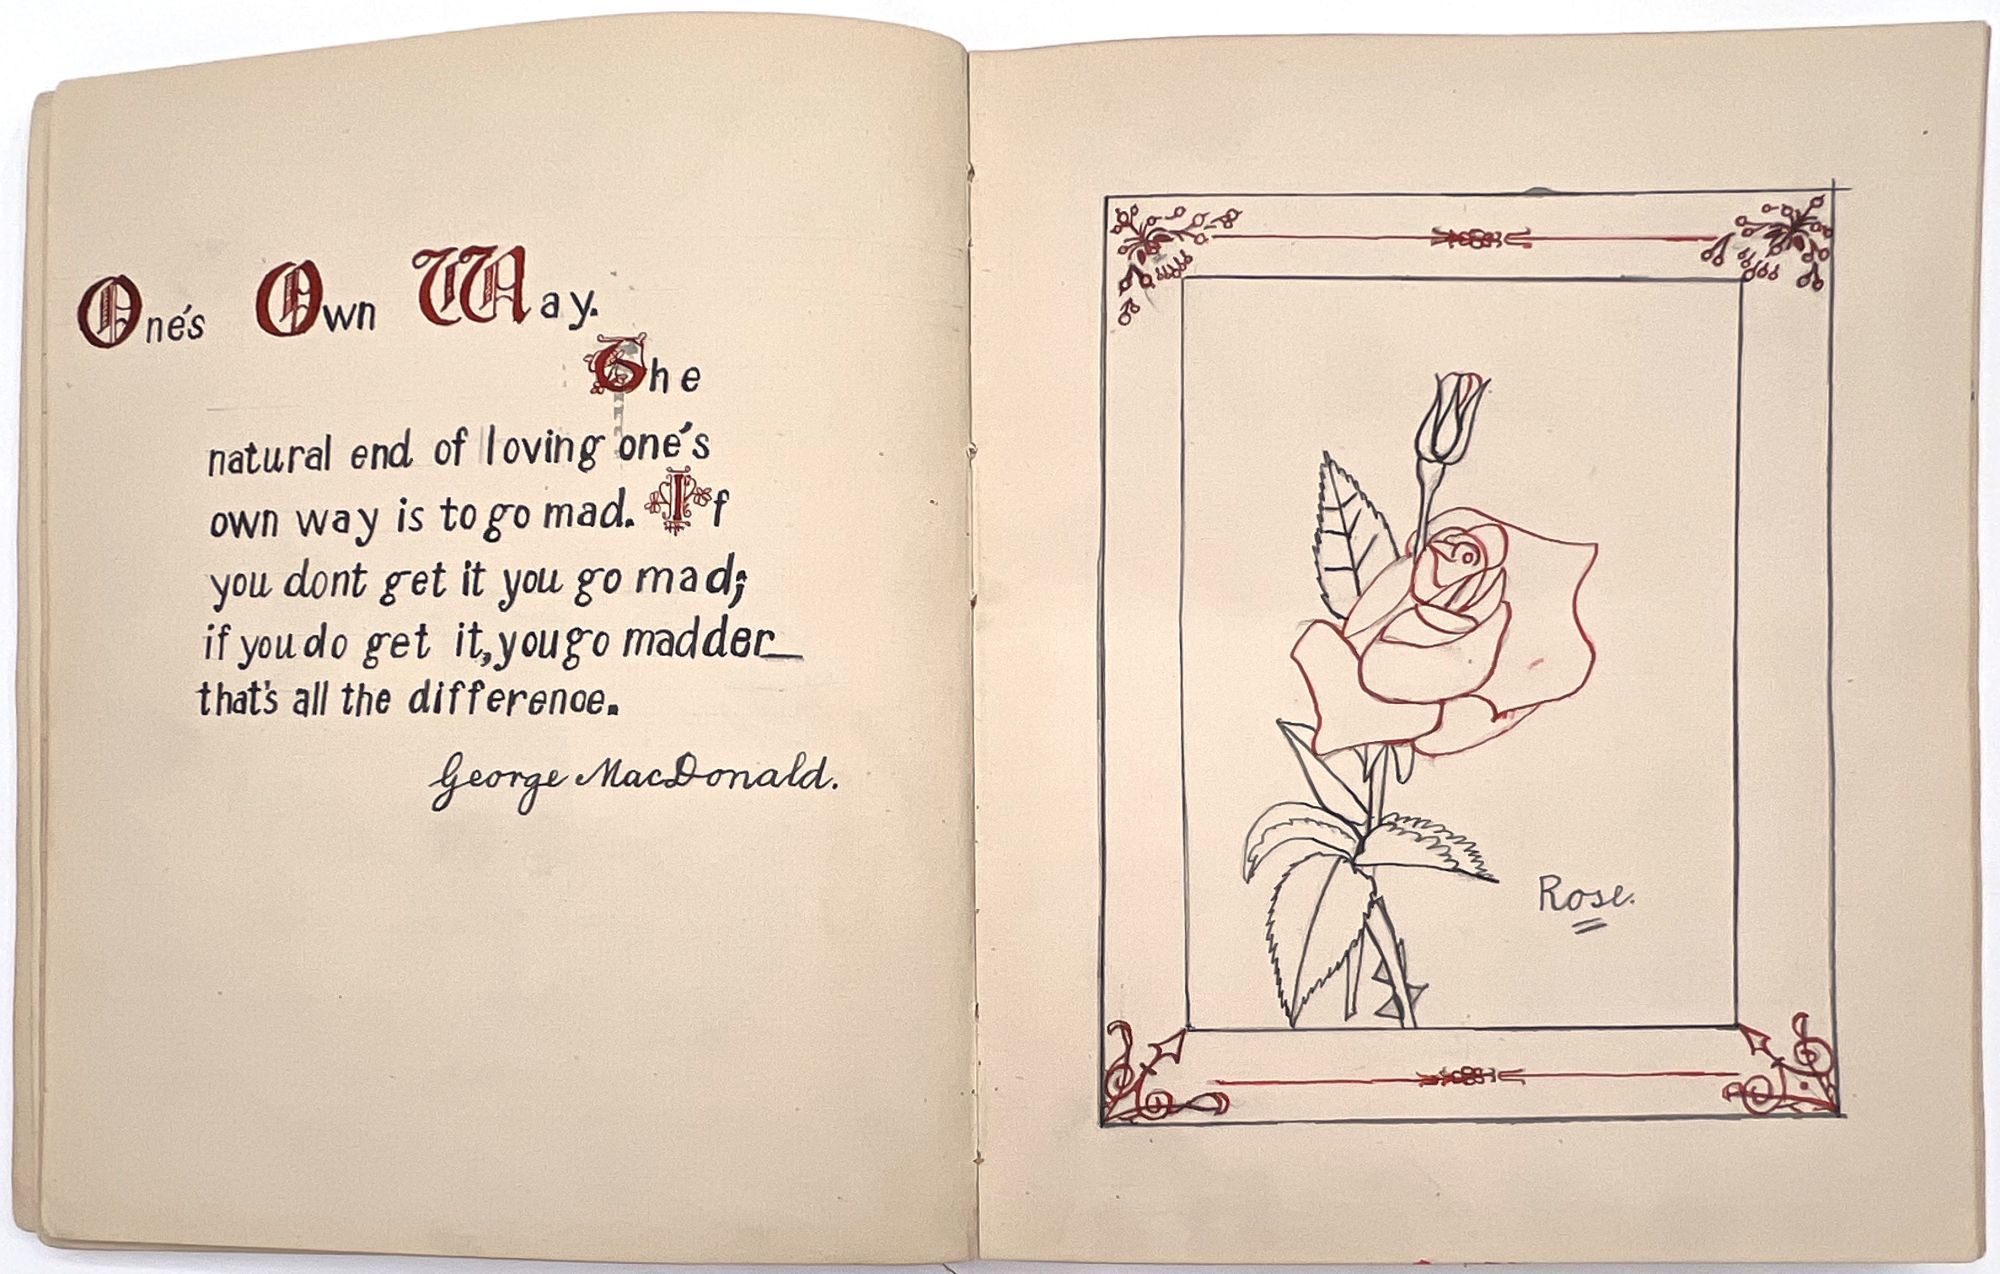 One's Own Way.
The
natural end of loving one's
own way is to go mad. If
you dont get it you go mad;
if you do get it, you go madder_
that's all the difference.
George MacDonald.
Rose.